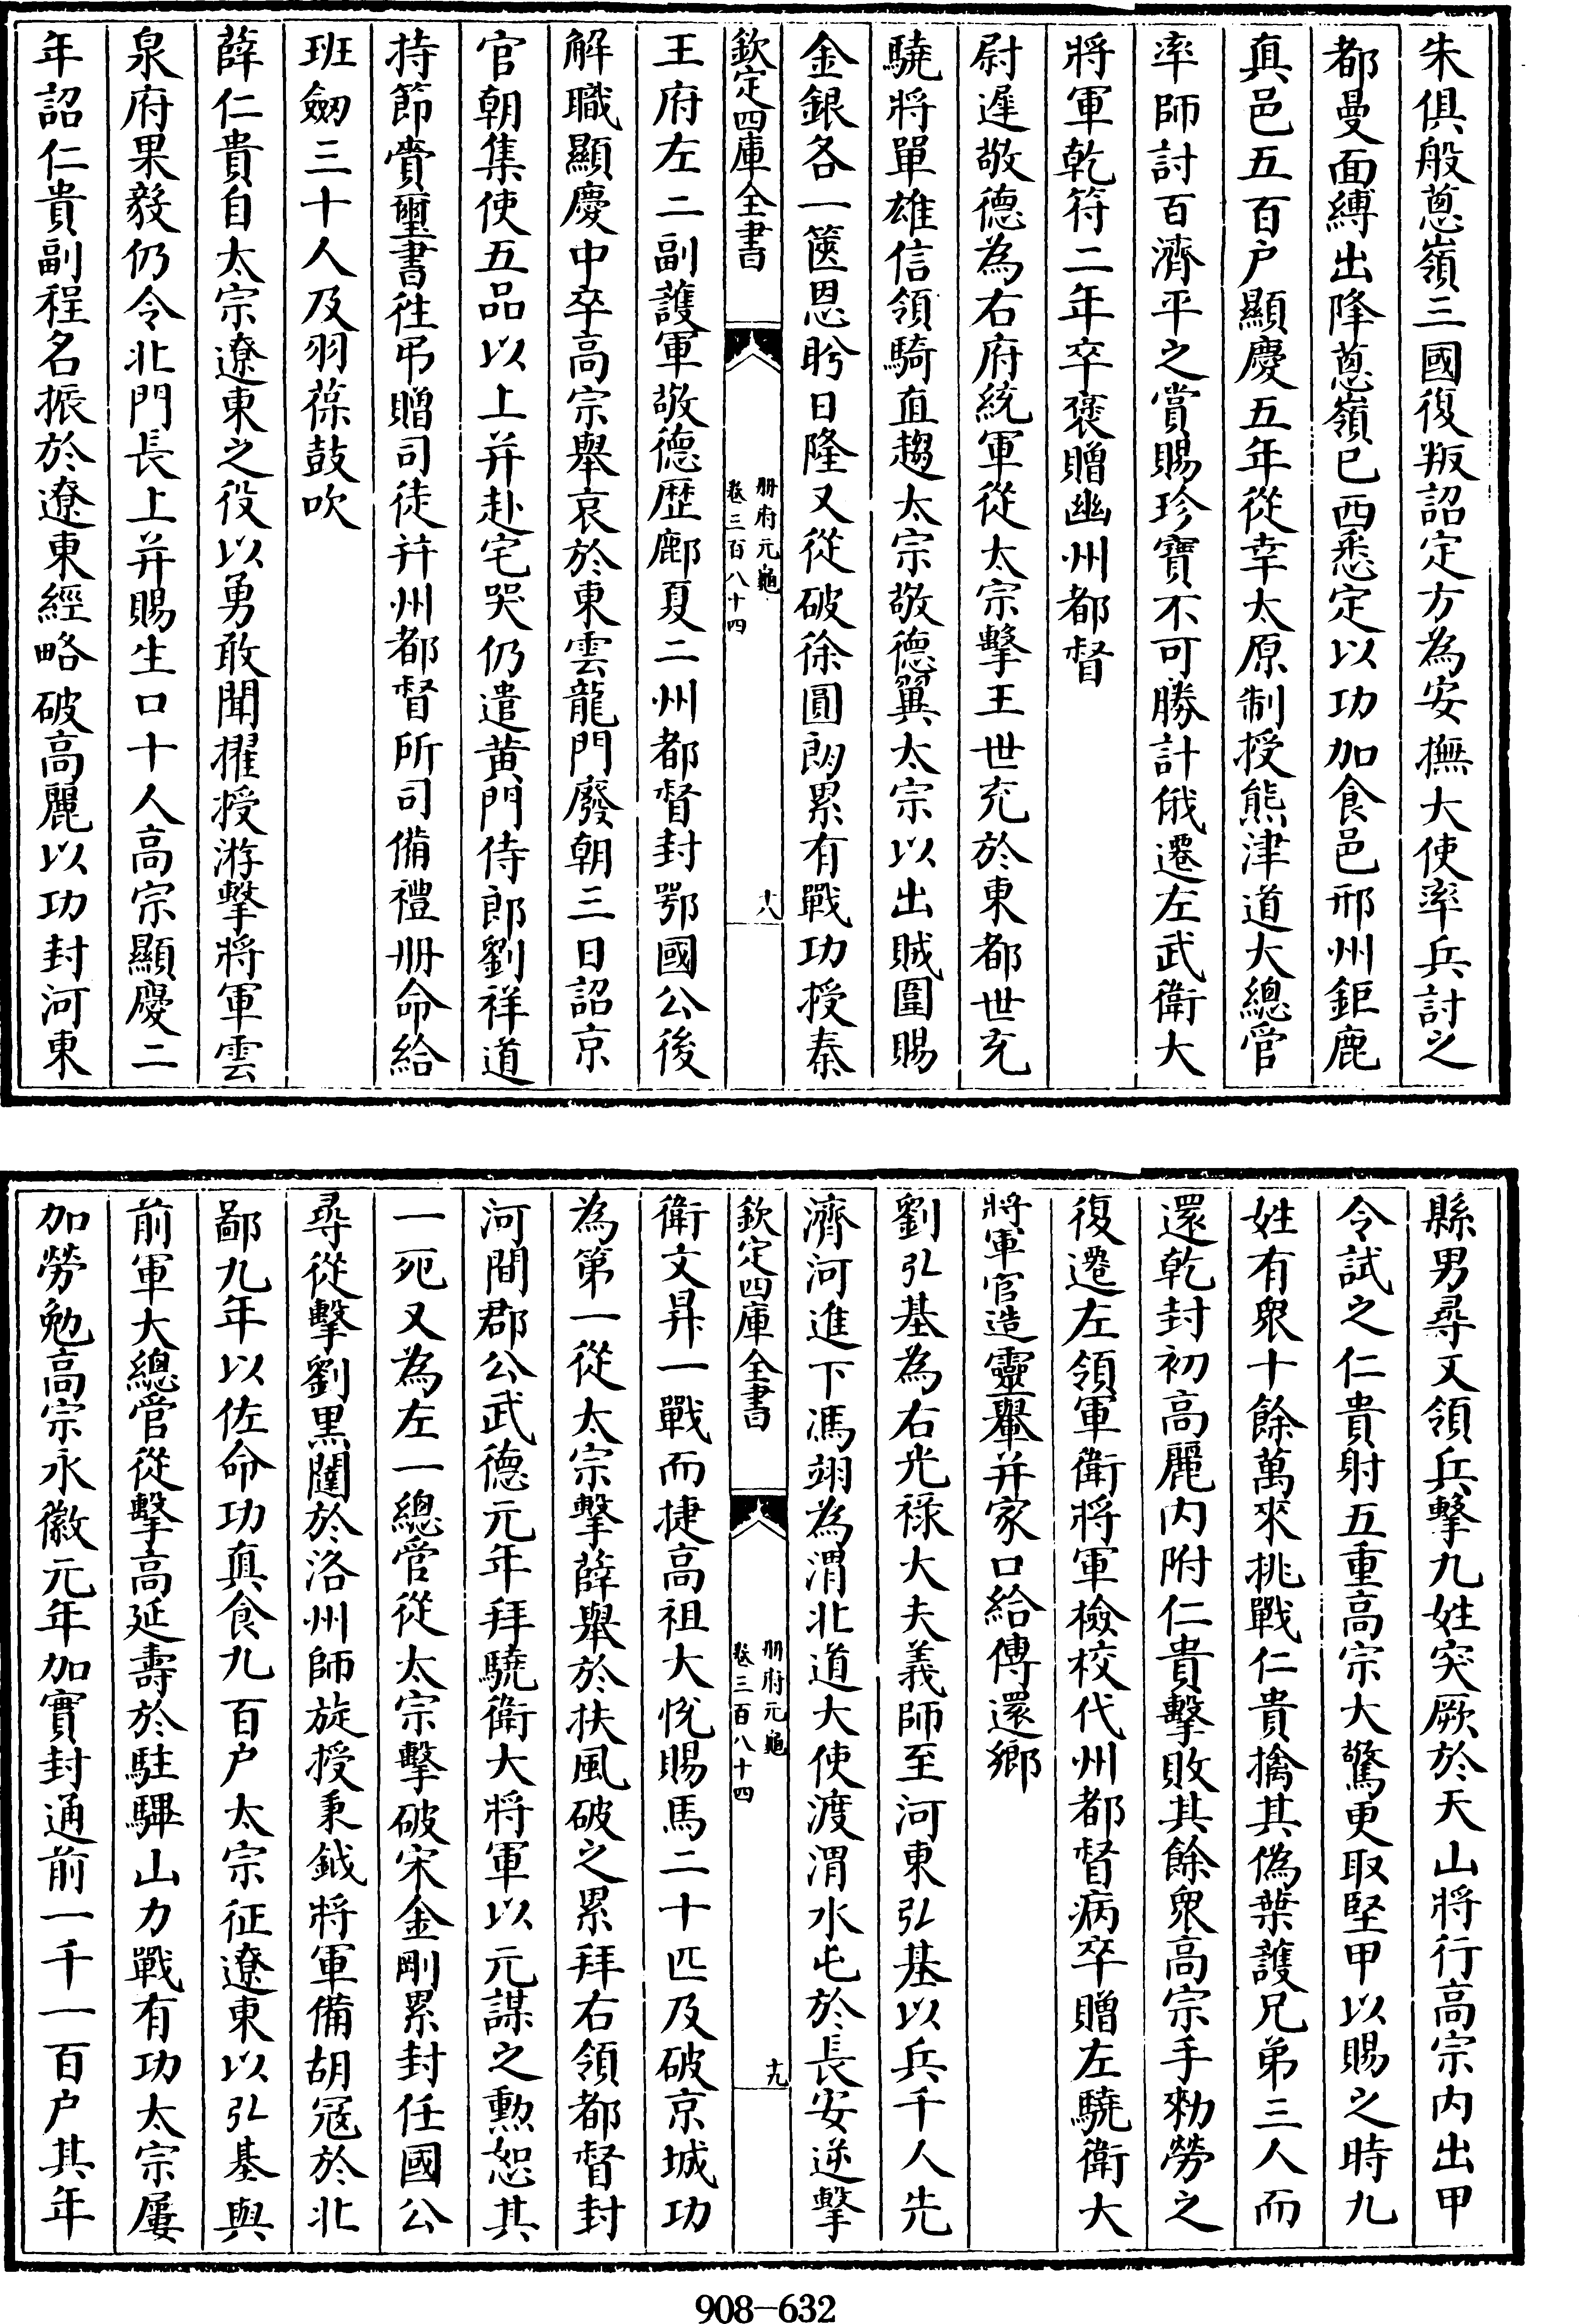 朱俱般蔥嶺三國復叛詔定方為安撫大使率兵討之
都曼面縛出降蔥嶺已西悉定以功加食邑邢州鉅鹿
真邑五百户顯慶五年從幸太原制授熊津道大總管
率師討百濟平之賞賜珍寶不可勝計俄遷左武衛大
將軍乾符二年卒褒贈幽州都督
尉遲敬德為右府統軍從太宗擊王世充於東都世充
驍將單雄信領騎直趨太宗敬德翼太宗以出賊圍賜
金銀各一篋恩盻日隆又從破徐圓朗累有戰功授秦
欽定四庫全書
册府元龜
卷三百八十四
十八
王府左二副護軍敬德歴鄜夏二州都督封鄂國公後
解職顯慶中卒高宗舉哀於東雲龍門廢朝三日詔京
官朝集使五品以上并赴宅哭仍遣黄門侍郎劉祥道
持節賫璽書徃弔贈司徒并州都督所司備禮册命給
班劒三十人及羽葆鼓吹
薛仁貴自太宗遼東之役以勇敢聞擢授游擊將軍雲
泉府果毅仍令北門長上并賜生口十人高宗顯慶二
年詔仁貴副程名振於遼東經略破高麗以功封河東
縣男尋又領兵擊九姓突厥於天山將行高宗内出甲
令試之仁貴射五重高宗大驚更取堅甲以賜之時九
姓有衆十餘萬來挑戰仁貴擒其偽葉護兄弟三人而
還乾封初高麗内附仁貴擊敗其餘衆高宗手勑勞之
復遷左領軍衛將軍檢校代州都督病卒贈左驍衛大
將軍官造靈轝并家口給傳還鄉
劉弘基為右光禄大夫義師至河東弘基以兵千人先
濟河進下馮翊為渭北道大使渡渭水屯於長安逆擊
欽定四庫全書
册府元龜
卷三百八十四
十九
衛文昇一戰而捷高祖大悦賜馬二十匹及破京城功
為第一從太宗擊薛舉於扶風破之累拜右領都督封
河間郡公武德元年拜驍衛大將軍以元謀之勲恕其
一死又為左一總管從太宗擊破宋金剛累封任國公
尋從擊劉黒闥於洛州師旋授秉鉞將軍備胡寇於北
鄙九年以佐命功真食九百户太宗征遼東以弘基與
前軍大總管從擊高延壽於駐驆山力戰有功太宗屢
加勞勉高宗永徽元年加實封通前一千一百户其年
908-632